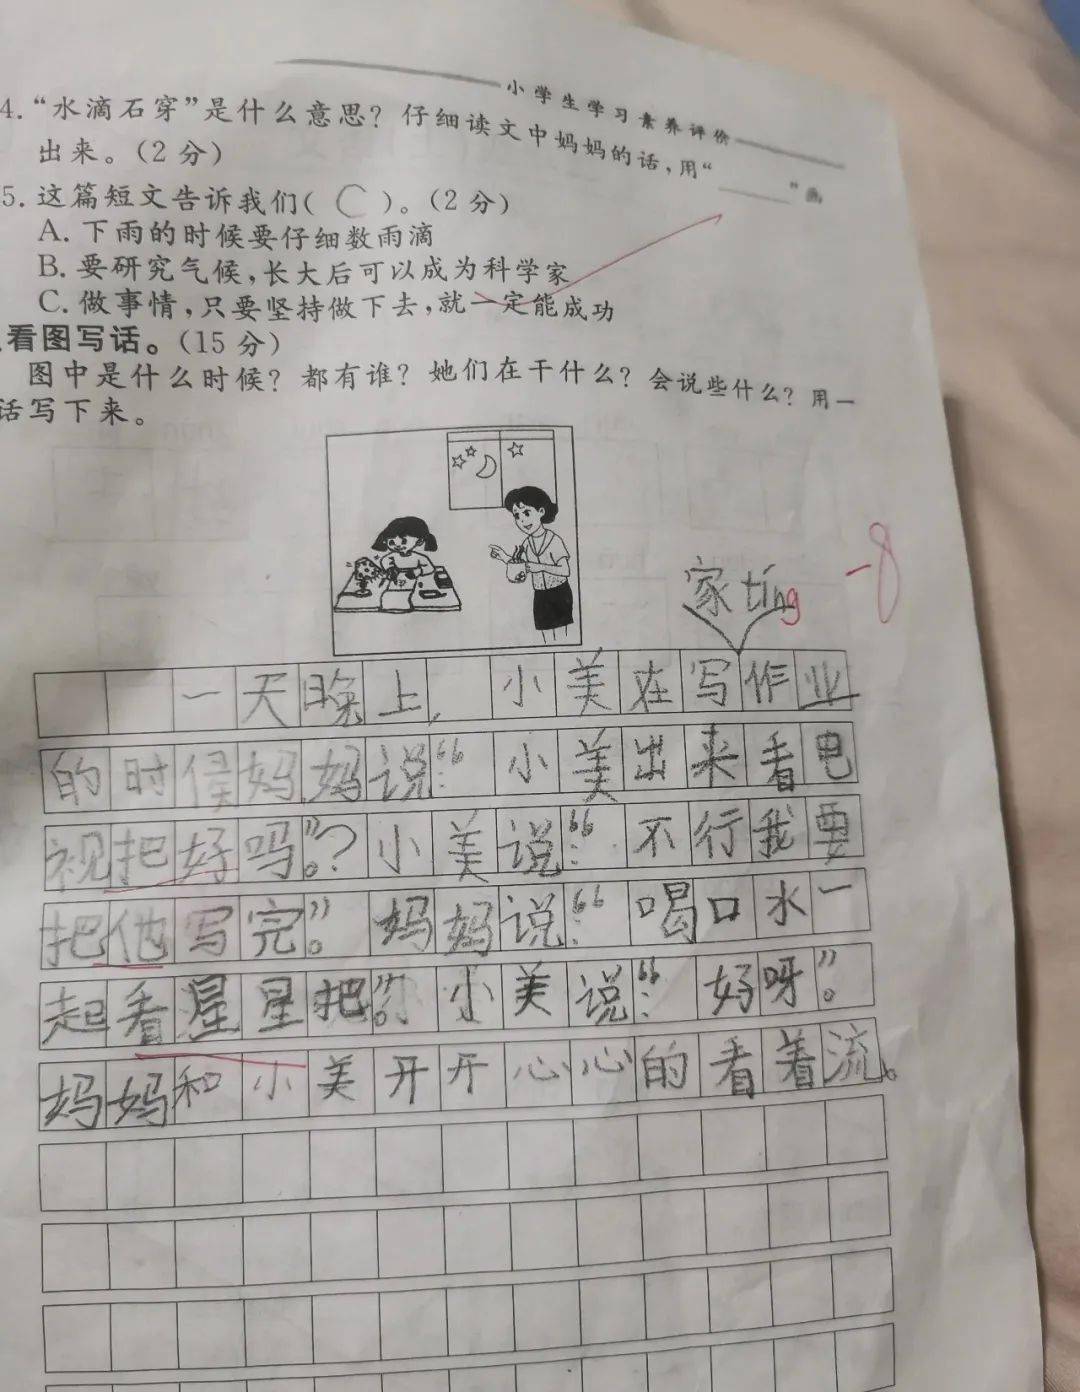 小学生学习素养评价
4.“水滴石穿”是什么意思？仔细读文中妈妈的话，用“______”画
出来。（2 分）
5. 这篇短文告诉我们( C )。（2 分）
A. 下雨的时候要仔细数雨滴
B. 要研究气候，长大后可以成为科学家
C. 做事情，只要坚持做下去，就一定能成功
看图写话。（15 分）
图中是什么时候？都有谁？她们在干什么？会说些什么？用一
话写下来。
家tíng
-8
一天晚上，小美在写作业
的时侯妈妈说：“小美出来看电
视把好吗。”？小美说：“不行我要
把他写完。”妈妈说：“喝口水一
起看星星把。”小美说：“好呀。”
妈妈和小美开开心心的看着流。